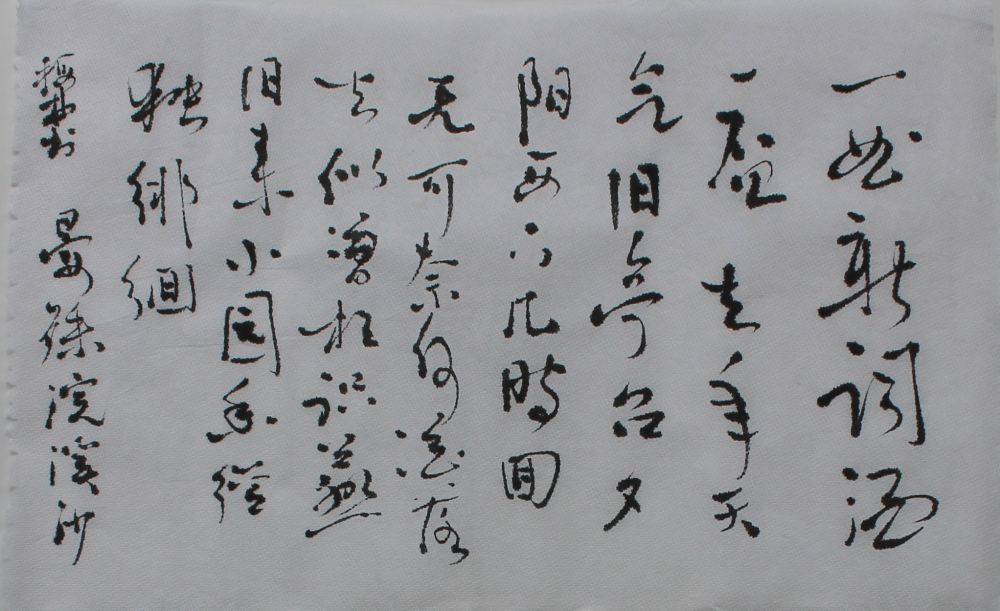 一曲新词酒
一盃去年天
气旧亭台夕
阳西下几時回
无可奈何花落
去似曾相识燕
归来小园香径
独徘徊
晏殊浣溪沙